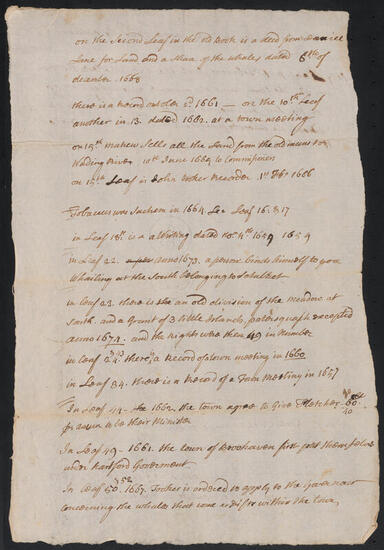 on the Second Leaf in the old Book is a deed from Daniell
Line for Land and a Shaa of the whales dated 8th of
december 1668
there is a Record october 2d 1661 — on the 10th Leef
another in 13. dated 1662. at a town meeting
on 15th mahew Sells all the Land from the old mans to
Wading River 10th June 1665 to Commissioners
on 15th Leaf is John Recorder 1st 1666
Tobaccus was Sachem in 1664 See Leaf 16. & 17
in Leaf 18th is a writing dated 4th 1659 1659
in Leaf 22. anno 1673. a person binds himself to go a
Whailing at the South belonging to Setalket
in Leaf 23. there is an old division of the meadow at
South. and a Grant of 3 little Islands, excepted
anno 1674. and the Rights were then 49 in Number
in Leaf 24. there is a Record of town meeting in 1660
in Leaf 34. there is a Record of a Town Meeting in 1657
In Leaf 44. 1662. the town agree to Give Fletcher 40
40
pr annum to be their Minister
In Leaf 49 - 1661. the town of Brookhaven first put themselves
under hartford Government
& 52
In Leaf 50. 1667. Tooker is ordered to apply to the Governor
concerning the whales that come a within the Town